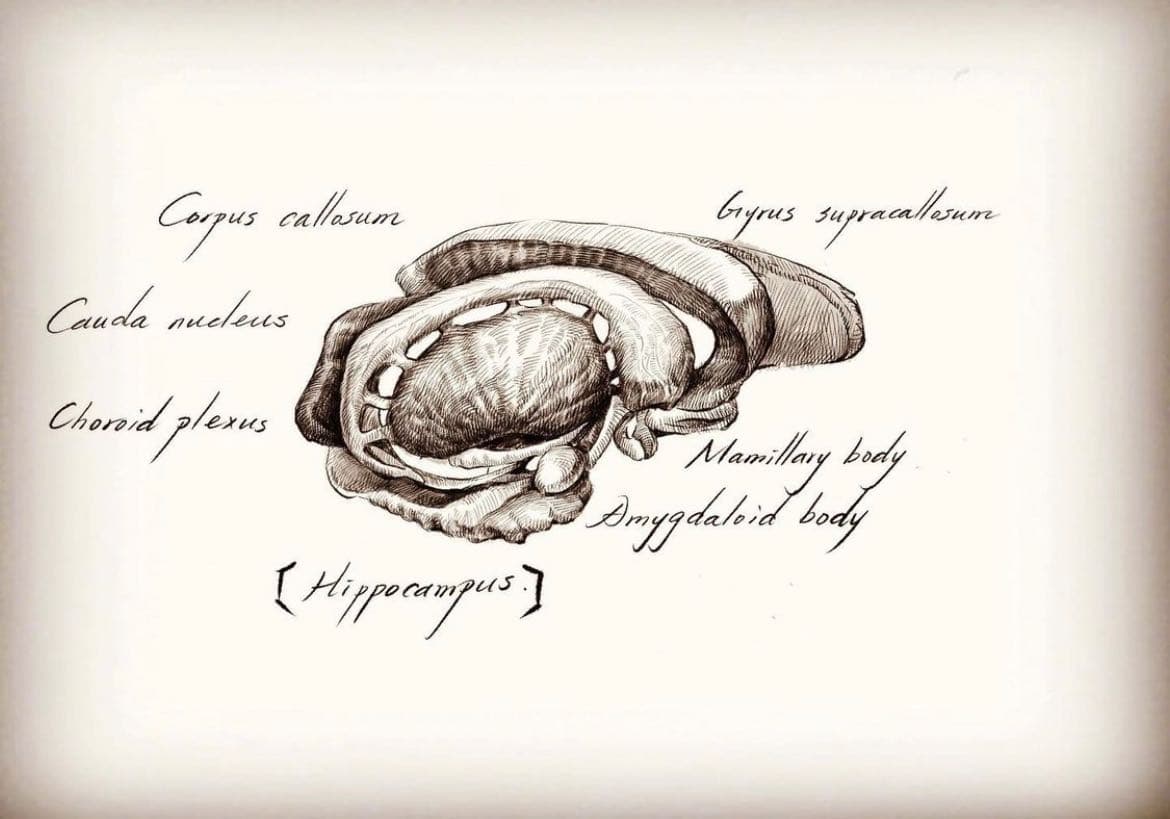 Corpus callosum
Gyrus supracallosum
Cauda nucleus
Choroid plexus
Mamillary body
Amygdaloid body
[Hippocampus.]